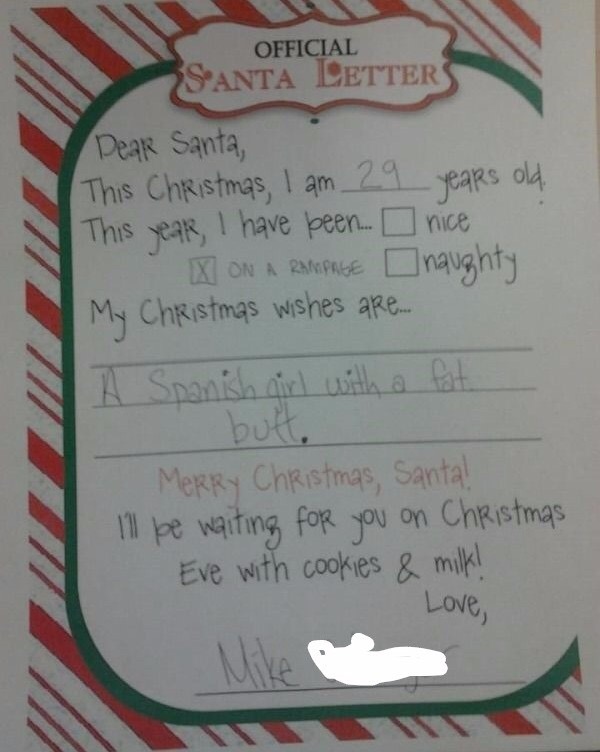 OFFICIAL
SANTA LETTER
Dear Santa,
This Christmas, I am 29 years old.
This year, I have been... nice
X ON A RAMPAGE naughty
My Christmas wishes are...
A Spanish girl with a fat
butt.
Merry Christmas, Santa!
I'll be waiting for you on Christmas
Eve with cookies & milk!
Love,
Mike